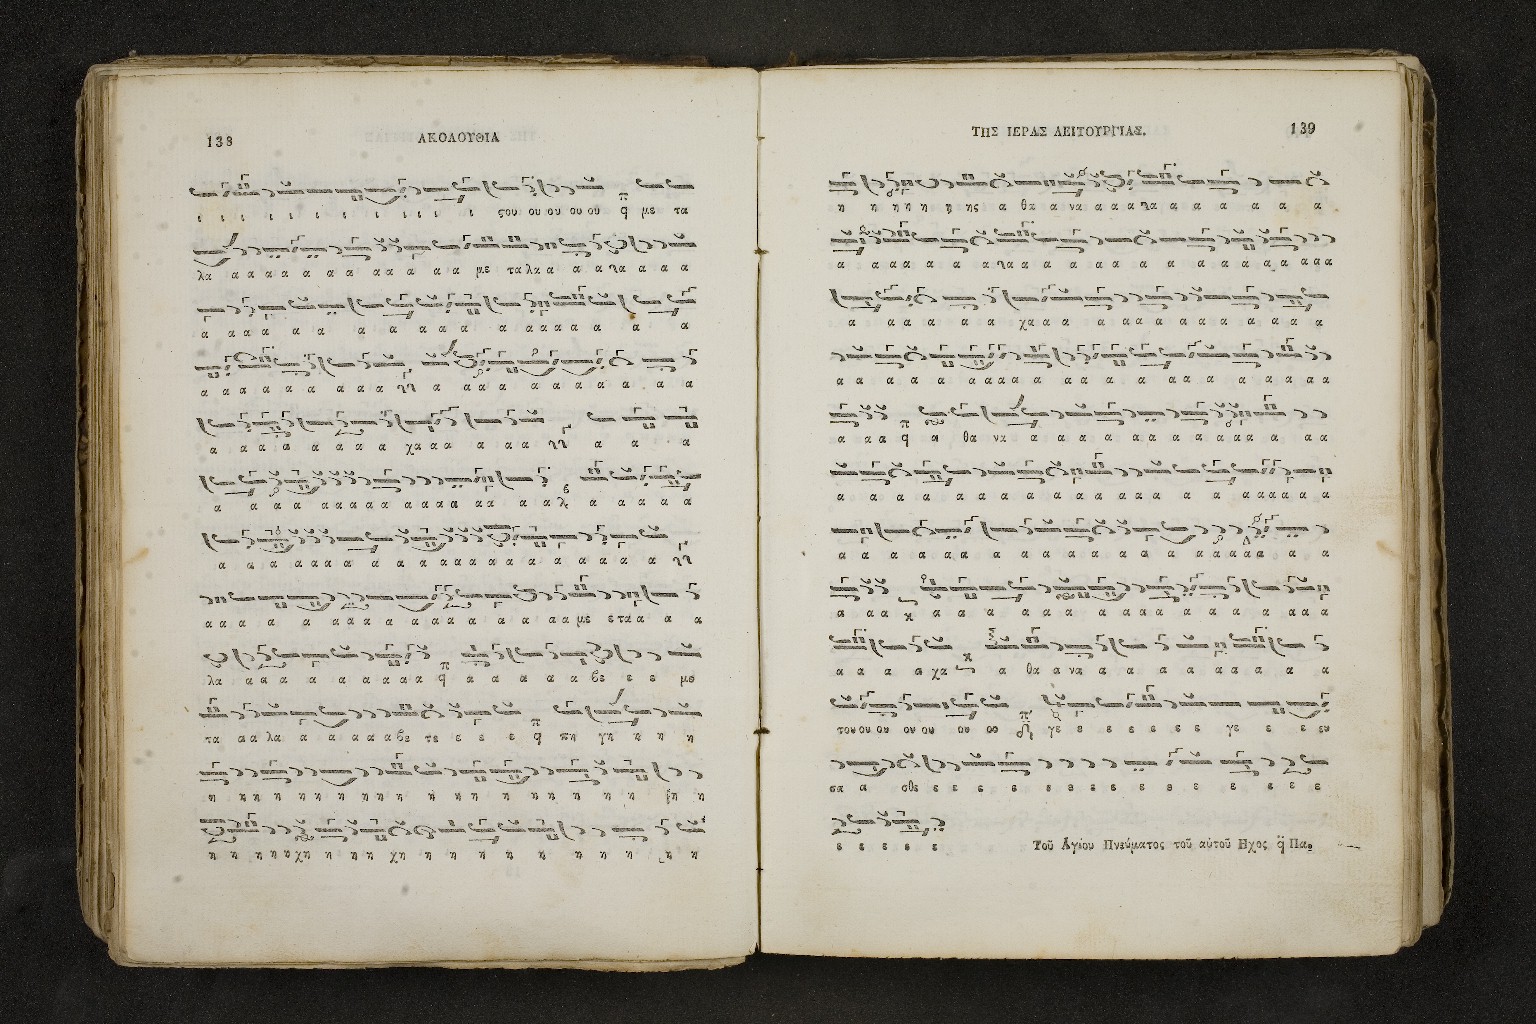 138
ΑΚΟΛΟΥΘΙΑ
ι ι ι ι ι ι ι ι ι ι ι ι ςου ου ου ου ου με τα
λα α α α α α α α α α α α α με τα λα α α α α α α α
α α α α α α α α α α α α α α α α α α α
α α α α α α α α α α α α α α α α α α α α
α α α α α α α α χα α α α α α α α α
α α α α α α α α α α α α α α α α α α α α α α
α α α α α α α α α α α α α α α α α α α α α
α α α α α α α α α α α α α α α α με ε τα α α α
λα α α α α α α α α α α α α α α βε ε ε με
τα α α λα α α α α α βε τε ε ε ε ε πη γη η η η
η η η η η η η η η η η η η η η η η η η η η
η η η η η χη η η η χη η η η η η η η η η
ΤΗΣ ΙΕΡΑΣ ΛΕΙΤΟΥΡΓΙΑΣ.
139
η η η η η ης α θα α να α α α α α α α α α α
α α α α α α α α α α α α α α α α α α α α α α
α α α α α χα α α α α α α α α α α α α
α α α α α α α α α α α α α α α α α α α
α α α α θα να α α α α α α α α α α α α α α
α α α α α α α α α α α α α α α α α α
α α α α α α α α α α α α α α α α α α α
α α α α α α α α α α α α α α α α α α
α α α α χα α θα α να α α α α α α α
του ου ου ου ου ου ου γε ε ε ε ε ε ε γε ε ε ευ
σα α σθε ε ε ε ε ε ε ε ε ε ε ε ε ε ε
ε ε ε ε ε
Τοῦ Ἁγίου Πνεύματος τοῦ αὐτοῦ Ἦχος Πα.